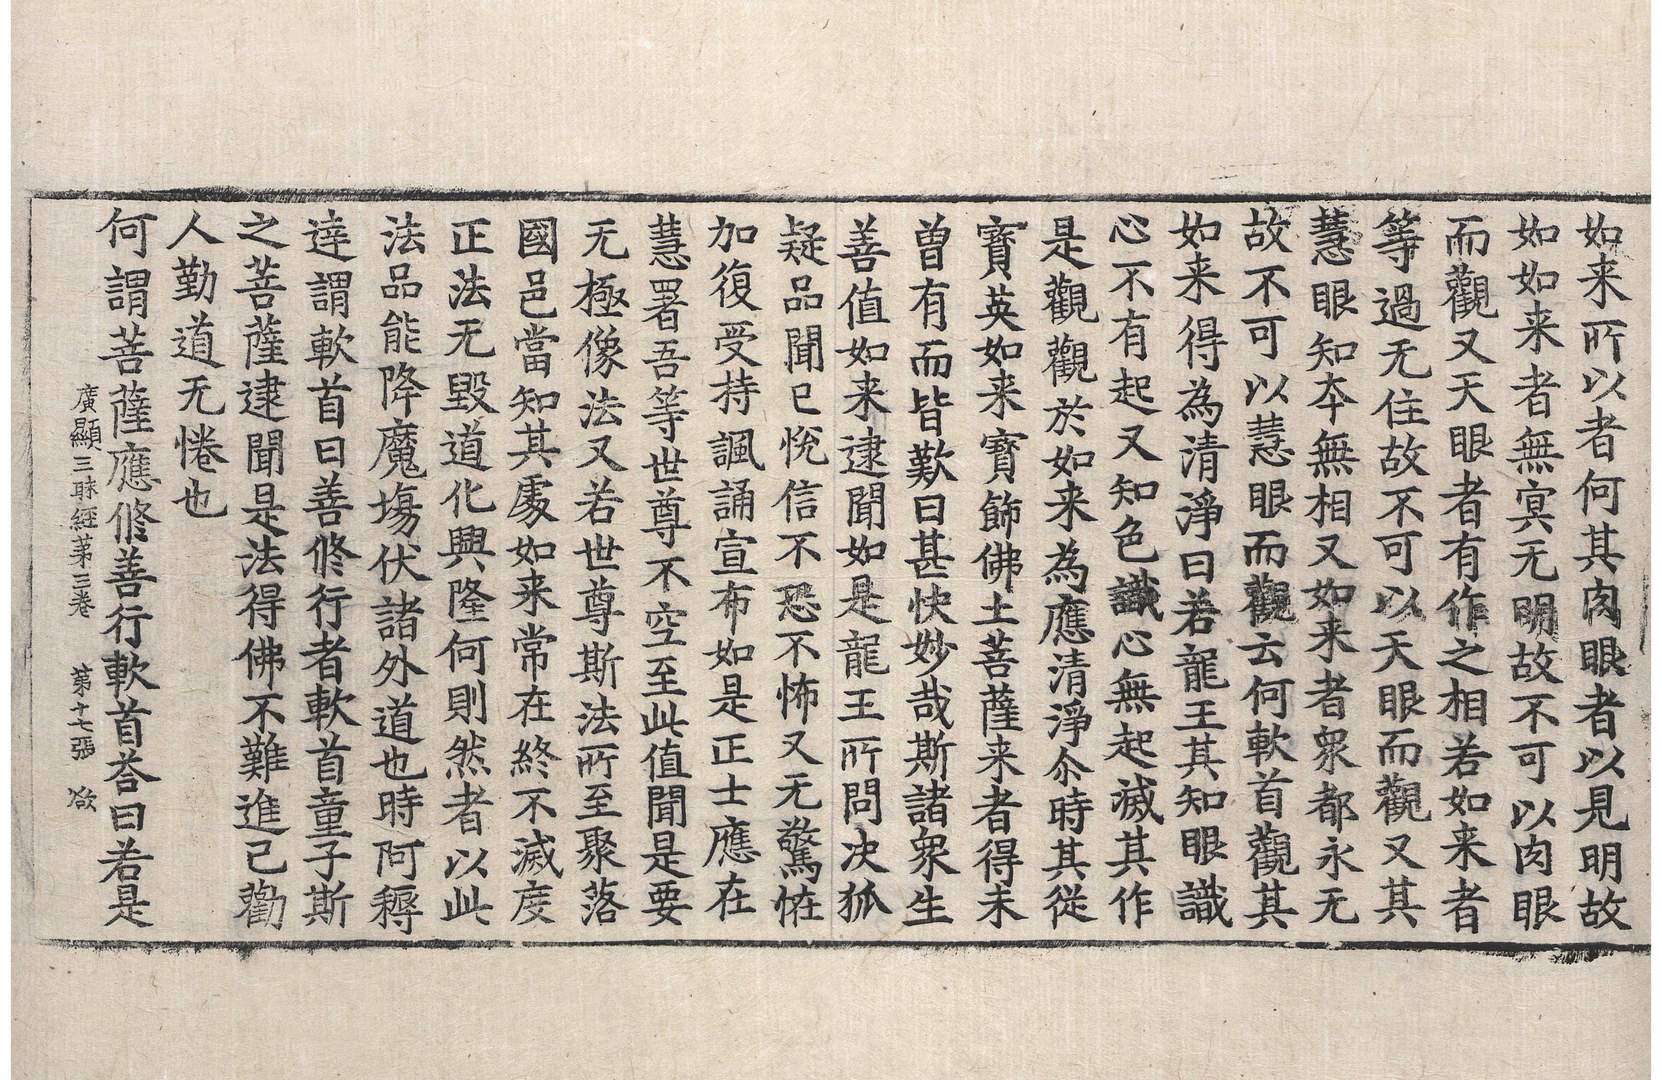 如来所以者何其肉眼者以見明故
如如来者無冥无明故不可以肉眼
而觀又天眼者有作之相若如来者
等過无住故不可以天眼而觀又其
慧眼知本無相又如来者衆都永无
故不可以慧眼而觀云何軟首觀其
如来得為清淨曰若龍王其知眼識
心不有起又知色識心無起滅其作
是觀觀於如来為應清淨尒時其從
寶英如来寶飾佛土菩薩来者得未
曽有而皆歎曰甚快妙哉斯諸衆生
善值如来逮聞如是龍王所問决狐
疑品聞已恱信不恐不怖又无驚恠
加復受持諷誦宣布如是正士應在
慧署吾等世尊不空至此值聞是要
无極像法又若世尊斯法所至聚落
國邑當知其處如来常在終不滅度
正法无毀道化興隆何則然者以此
法品能降魔塲伏諸外道也時阿耨
達謂軟首曰善修行者軟首童子斯
之菩薩逮聞是法得佛不難進已勸
人勤道无惓也
何謂菩薩應修善行軟首荅曰若是
廣顯三昧經苐三卷 第十七張